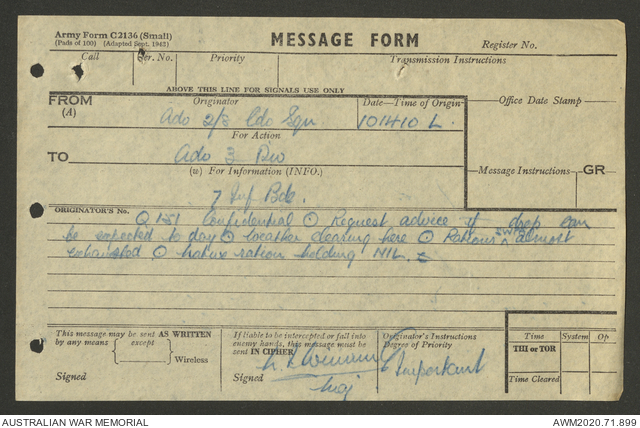 Army Form C2136 (Small)
(Pads of 100) (Adapted Sept. 1943)
MESSAGE FORM
Register No.
Call Ser. No. Priority Transmission Instructions
ABOVE THIS LINE FOR SIGNALS USE ONLY
FROM
(A)
Originator
Date—Time of Origin
Office Date Stamp
Adv 2/3 Cdo Sqn 101410 L.
For Action
TO
Adv 3 Div
(W) For Information (INFO.)
Message Instructions GR
7 Inf Bde.
ORIGINATOR'S No.
Q 151 Confidential ⊙ Request advice if drop can
be expected to day ⊙ weather clearing here ⊙ Rations almost
exhausted ⊙ native ration holding NIL.
This message may be sent AS WRITTEN
by any means except
Wireless
Signed
If liable to be intercepted or fall into
enemy hands, this message must be
sent IN CIPHER
Signed
Maj
Originator's Instructions
Degree of Priority
Important
Time System Op
THI or TOR
Time Cleared
AUSTRALIAN WAR MEMORIAL
AWM2020.71.899